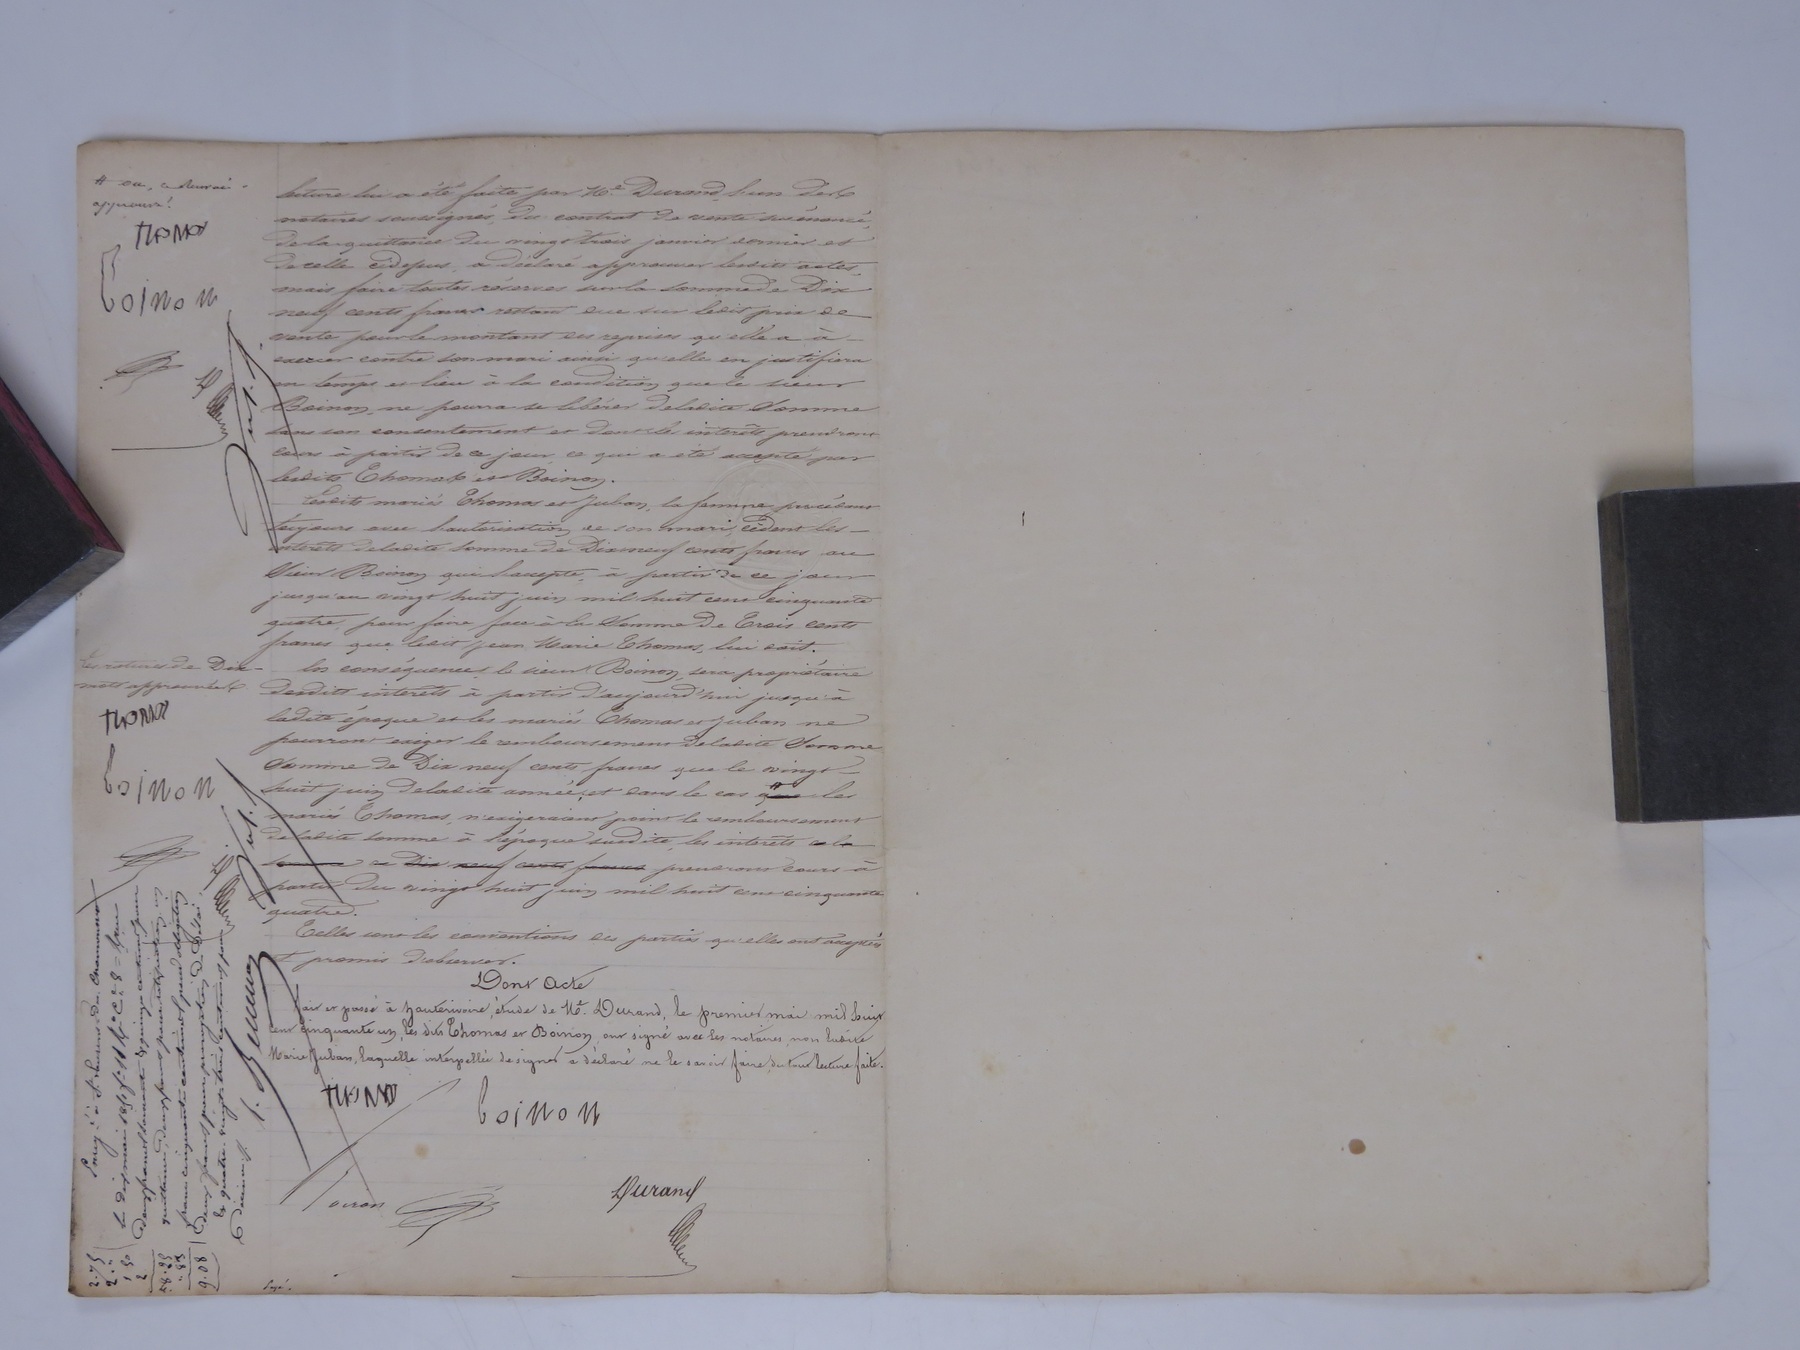 lecture lui a été faite par Me Durand, l'un des
notaires soussignés, du contrat de vente susénoncé,
de la quittance du vingt trois janvier dernier et
de celle cidessus, a déclaré approuver lesdits actes,
mais faire toutes réserves sur la somme de Dix
neuf cents francs restant due sur ledit prix de
vente pour le montant des reprises qu'elle a à
exercer contre son mari ainsi qu'elle en justifiera
en temps et lieu à la condition que le sieur
Boinon ne pourra se libérer deladite Somme
sans son consentement et dont les intérêts prendront
cours à partir de ce jour, ce qui a été accepté par
lesdits Thomas et Boinon.
Lesdits mariés Thomas et Juban, la femme procédant
toujours avec l'autorisation de son mari, cèdent les
intérêts deladite Somme de Dix neuf cents francs au
sieur Boinon qui l'accepte, à partir de ce jour
jusqu'au vingt huit juin mil huit cent cinquante
quatre, pour faire face à la Somme de Trois cents
francs que ledit Jean Marie Thomas, lui doit.
En conséquence, le sieur Boinon, sera propriétaire
desdits intérêts à partir d'aujourd'hui jusqu'à
ladite époque et les mariés Thomas et Juban ne
pourront exiger le remboursement deladite Somme
Somme de Dix neuf cents francs que le vingt
huit juin deladite année, et dans le cas que les
mariés Thomas, n'exigeraient point le remboursement
deladite somme à l'époque susdite, les intérêts de la
somme de Dix neuf cents francs prendront cours à
partir du vingt huit juin mil huit cent cinquante
quatre.
Telles sont les conventions des parties qu'elles ont acceptées
et promis d'observer.
Dont Acte
Fait et passé à hauterivoire, étude de Me Durand, le premier mai mil huit
cent cinquante un, les dits Thomas et Boinon, ont signé avec les notaires, non ladite
Marie Juban, laquelle interpellée de signer a déclaré ne le savoir faire, du tout lecture faite.
THOMAS
boinon
Durand
# ou,
approuvé
THOMAS
boinon
Les ratures de Dix
mots approuvées
THOMAS
boinon